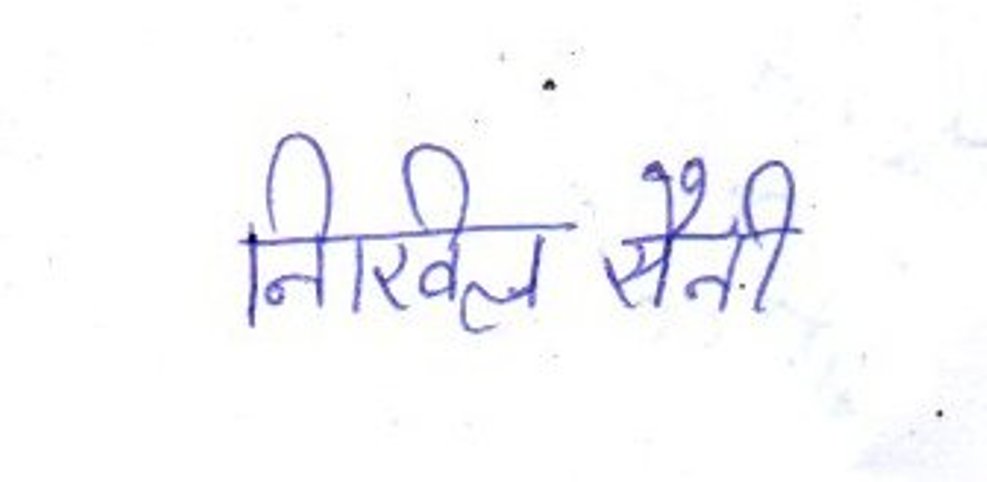 निखिल सैनी